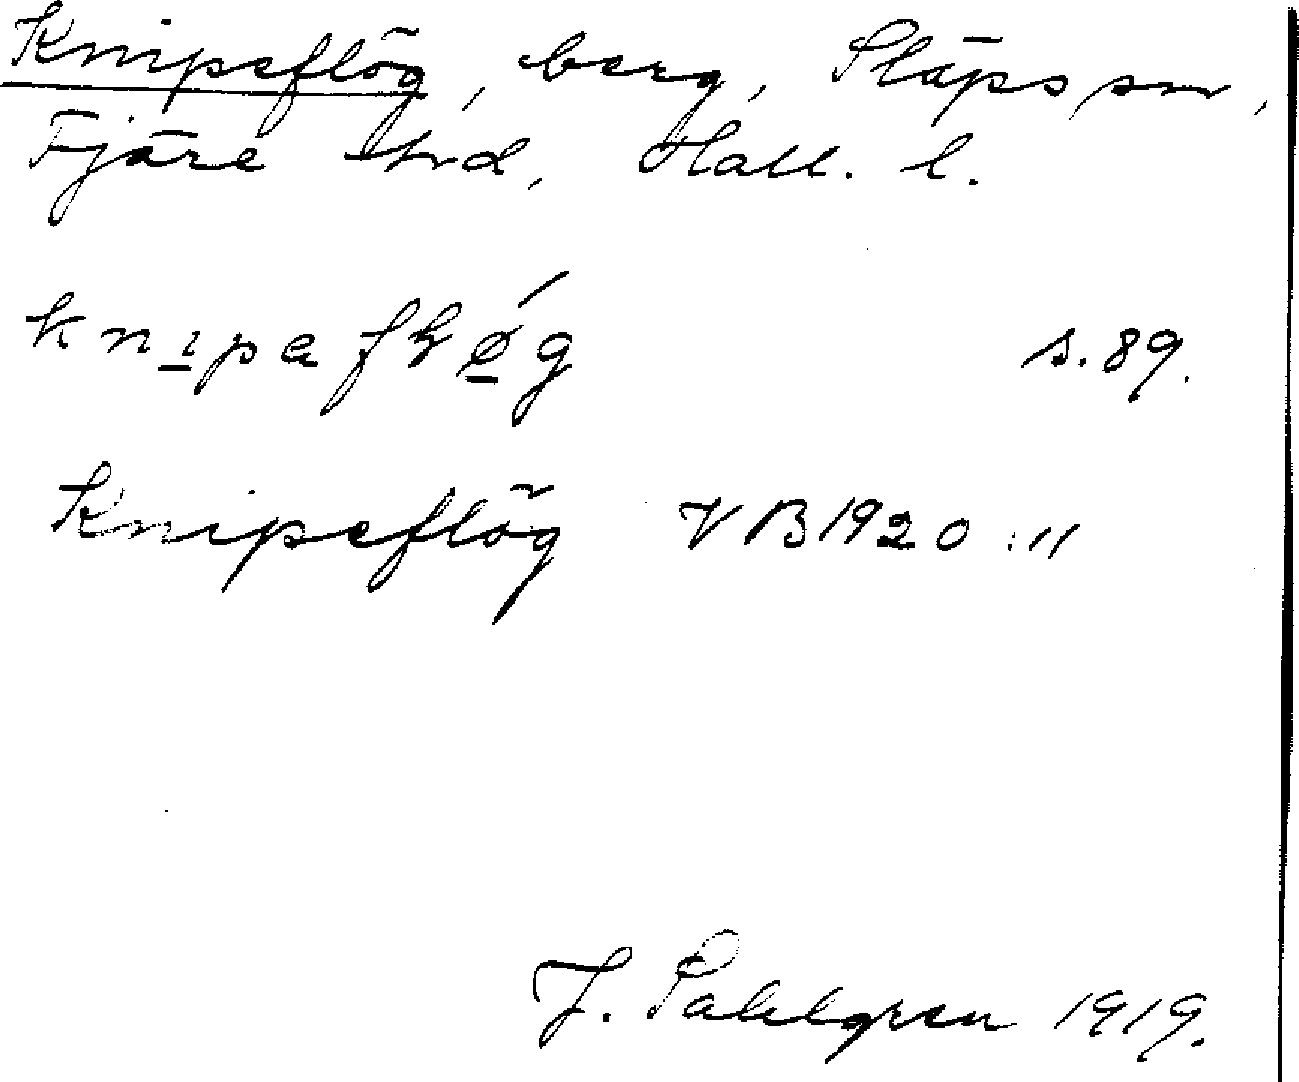 Knipeflög, berg, Släps sn,
Fjäre hd, Hall. l.
knipaflǿg s. 89.
Knipeflög VB 1920:11
J. Sahlgren 1919.